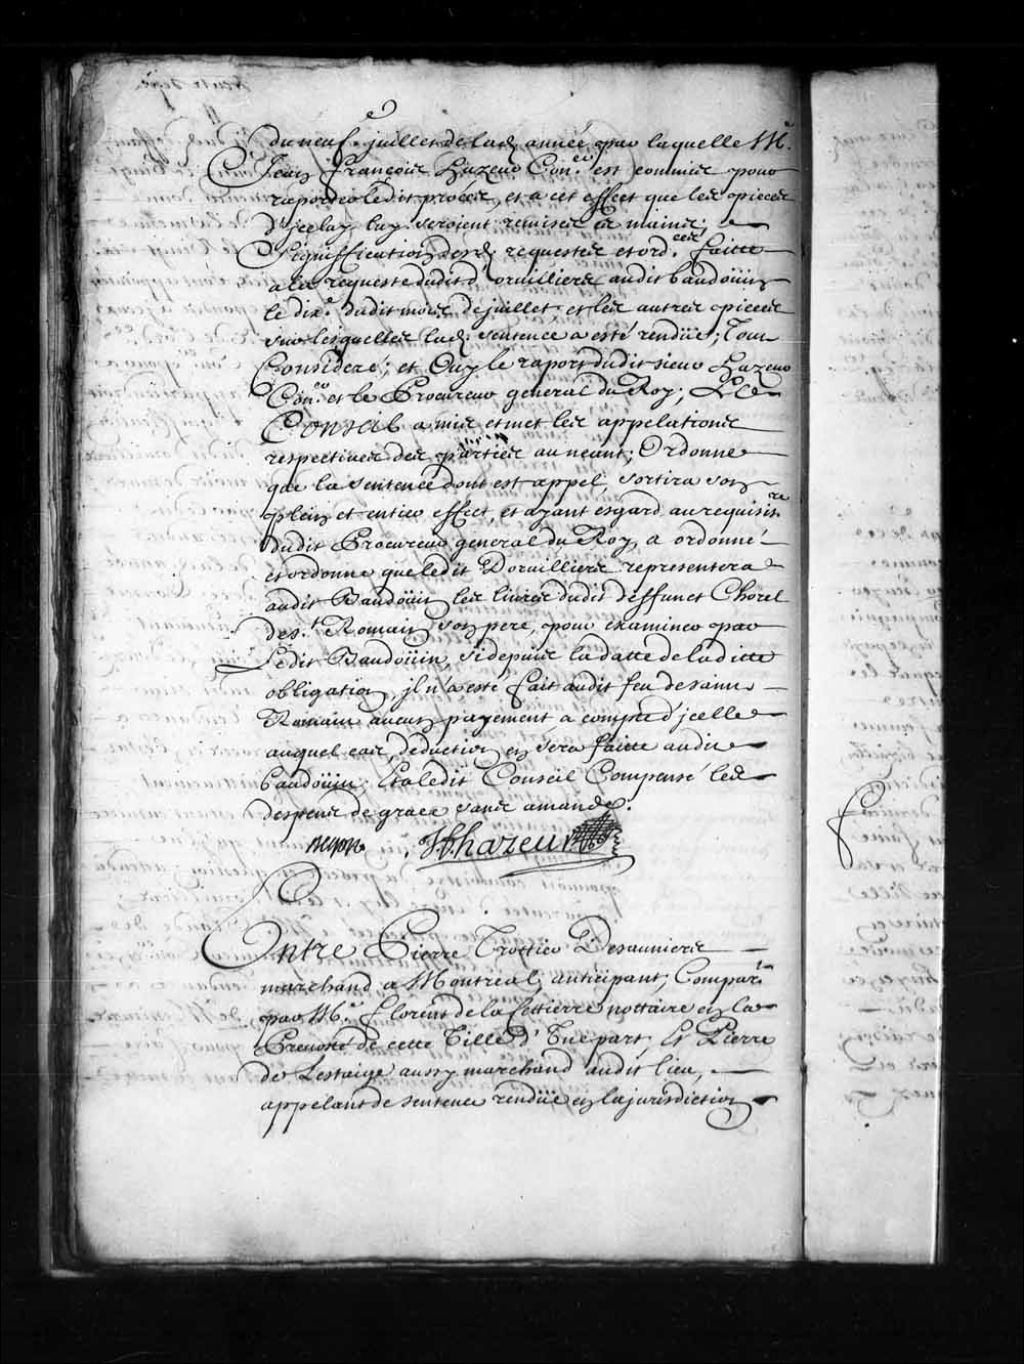 du neuf.e juillet de lad. année, par laquelle M.e
Jean François Hazeur Con.er est commis pour
raporter ledit procés, et a cet effect que les pieces
d'jceluy luy seroient remises és mains;
Signiffication desd. requestes et ord.ces faitte
a la requeste dudit dorvilliers audit baudoüin
le dix.e dudit mois de juillet, et les autres pieces
sur lesquelles lad. sentence a esté rendüe; Tout
Consideré; et Ouy le raport dudit sieur Hazeur
Con.er et le Procureur general du Roy; LE
CONSEIL a mis et met les appelations
respectives des parties au neant; Ordonne
que la sentence dont est appel, sortira son
plein et entier effect, et ayant esgard au requisit.re
dudit Procureur general du Roy, a ordonné
et ordonne que ledit Dorvilliers representera
audit Baudoüin les livres dudit deffunct Chorel
de s.t Romain son pere, pour examiner par
Ledit Baudoüin, si depuis la datte de ladicte
obligation, jl n'a esté fait audit feu de saint
Romain aucun payement a compte d'jcelle
auquel cas, deduction en sera faitte audit
baudoüin; Et a ledit Conseil Compensé les
despens de grace sans amande.
Begon . JfHazeur
Entre Pierre Trottier Desauniers
marchand a Montreal, anticipant; Compar.t
par M.e Florent de la Cettierre nottaire en la
Prevosté de cette Ville d'Une part, Et Pierre
de Lestaige aussy marchand audit lieu,
appelant de sentence rendüe en la jurisdiction